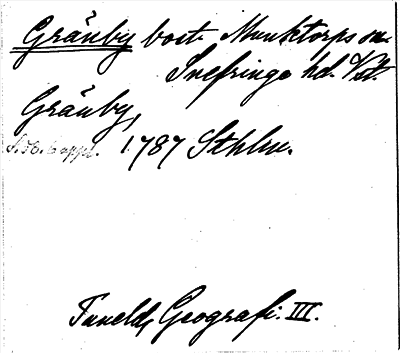 Gränby bost. Munktorps sn.
Snefringe hd. Vstl.
Gränby,
1787 Sthlm.
Tunelds Geografi. III.